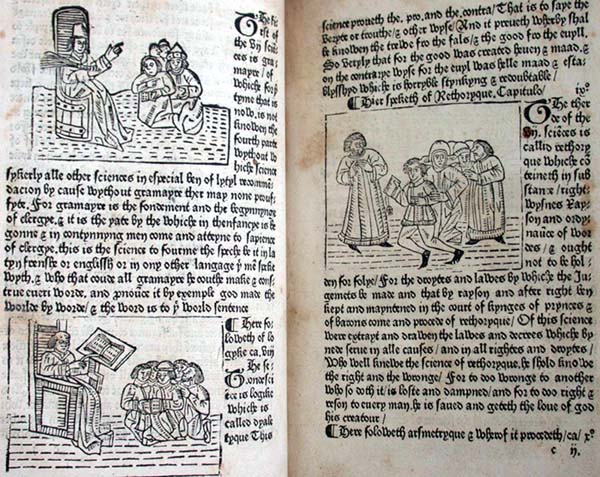 The fir
rst of
the vij sci
ences is gra
mayre / of
whiche for þ
tyme that is
now. is not
knowen the
fourth parte
wythout wh
hiche science
sykerly alle other sciences in especial ben of lytyl recomen
dacion by cause wythout gramayre ther may none prouf=
fyte. For gramayre is the fondement and the begynnyng
of clergye. & it is the yate by the whiche in thenfancye is be
gonne & in contynnyng men come and atteyne to sapience
of clergye. this is the science to fourme the speche be it in la
tyn frenshe or englissh or in ony other langage þt men speke
wyth. & who that coude all gramayre he couthe make & cons
true euery worde. and pronouce it by exemple god made the
worlde by worde / & the word is to þe world sentence
¶ Here fo
loweth of lo
gyke ca. viij
The se
condscie
ce is logike
whiche is
called dyale
tyque This
science proueth the .pro. and the .contra / That is to saye the
veryte or trouthe / & other wyse / And it preueth wherby shal
be knowen the trewe fro the fals / & the good fro the euyll.
So veryly that for the good was created heuen & maad. &
on the contrarye wyse for the euyl was helle maad & esta=
blysshyd whiche is horryble stynkyng & redoubtable /
¶ Hier speketh of Rethoryque. Capitulo / ixo
The ther
de of the
vij. sciences is
callid rethory
que whiche co
teineth in sub
stance / right=
wysnes Rayson
and ordy
naunce of wor
des / & ought
not to be hol=
den for folye / For the droytes and lawes by whiche the Ju=
gemets be made and that by rayson and after right ben
kept and mayntend in the court of kynges of prynces &
of barons come and procede of rethoryque / Of this science
were extrayt and drawen the lawes and decrees whiche by
nede serue in alle causes / and in all rightes and droytes /
Who well knewe the science of rethoryque. he shold knowe
the right and the wronge / For to doo wronge to another
who so doth it / is loste and dampned / and for to doo right &
rson to euery man / he is saued and geteth the loue of god
his creatour /
¶ Here foloweth arsmetryque & wherof it procedeth / ca / xo
c ij.